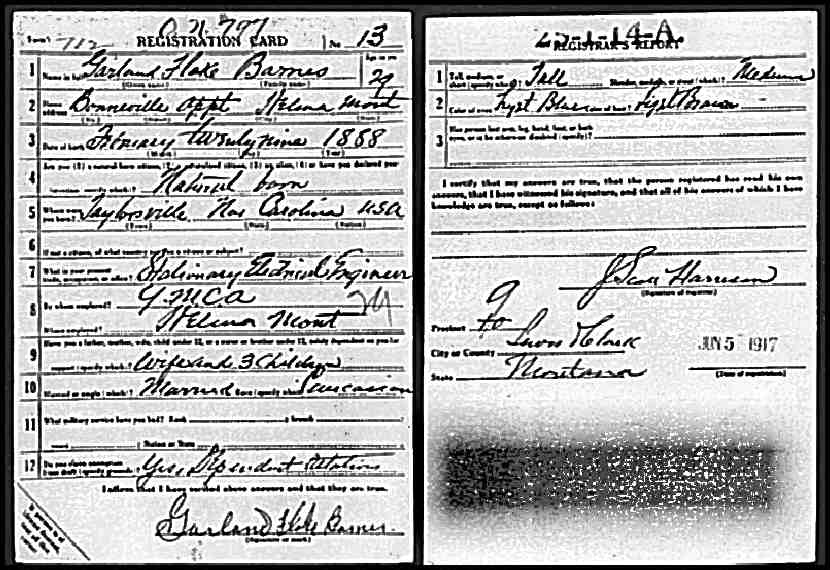 Form 1
REGISTRATION CARD No. 13
Age in yrs 29
1 Name in full Garland Flake Barnes
(Given name) (Family name)
2 Home address Bonneville Appt Helena Mont
3 Date of birth February twenty nine 1888
(Month) (Day) (Year)
4 Are you (1) a natural-born citizen, (2) a naturalized citizen, (3) an alien, (4) or have you declared your
intention (specify which)? Natural born
5 Where were you born? Taylorsville Nor Carolina USA
(Town) (State) (Nation)
6 If not a citizen, of what country are you a citizen or subject?
7 What is your present trade, occupation, or office? Stationary Electrical Engineer
8 By whom employed? Y.M.C.A
Where employed? Helena Mont
9 Have you a father, mother, wife, child under 12, or a sister or brother under 12, solely dependent on you for
support (specify which)? Wife and 3 Children
10 Married or single (which)? Married Race (specify which)? Caucasian
11 What military service have you had? Rank ; branch
; Nation or State
12 Do you claim exemption from draft (specify grounds)? Yes, Dependent relations
I affirm that I have verified above answers and that they are true.
Garland Flake Barnes.
(Signature or mark)
REGISTRAR'S REPORT
1 Tall, medium, or short (specify which)? Tall Slender, medium, or stout (which)? Medium
2 Color of eyes? Lyst Blue Color of hair? Lyst Brown
3 Has person lost arm, leg, hand, foot, or both eyes, or is he otherwise disabled (specify)?
I certify that my answers are true, that the person registered has read his own
answers, that I have witnessed his signature, and that all of his answers of which I have
knowledge are true, except as follows:
J Scott Harrison
(Signature of registrar)
Precinct 9
City or County Lewis & Clark
State Montana
JUN 5 1917
(Date of registration)